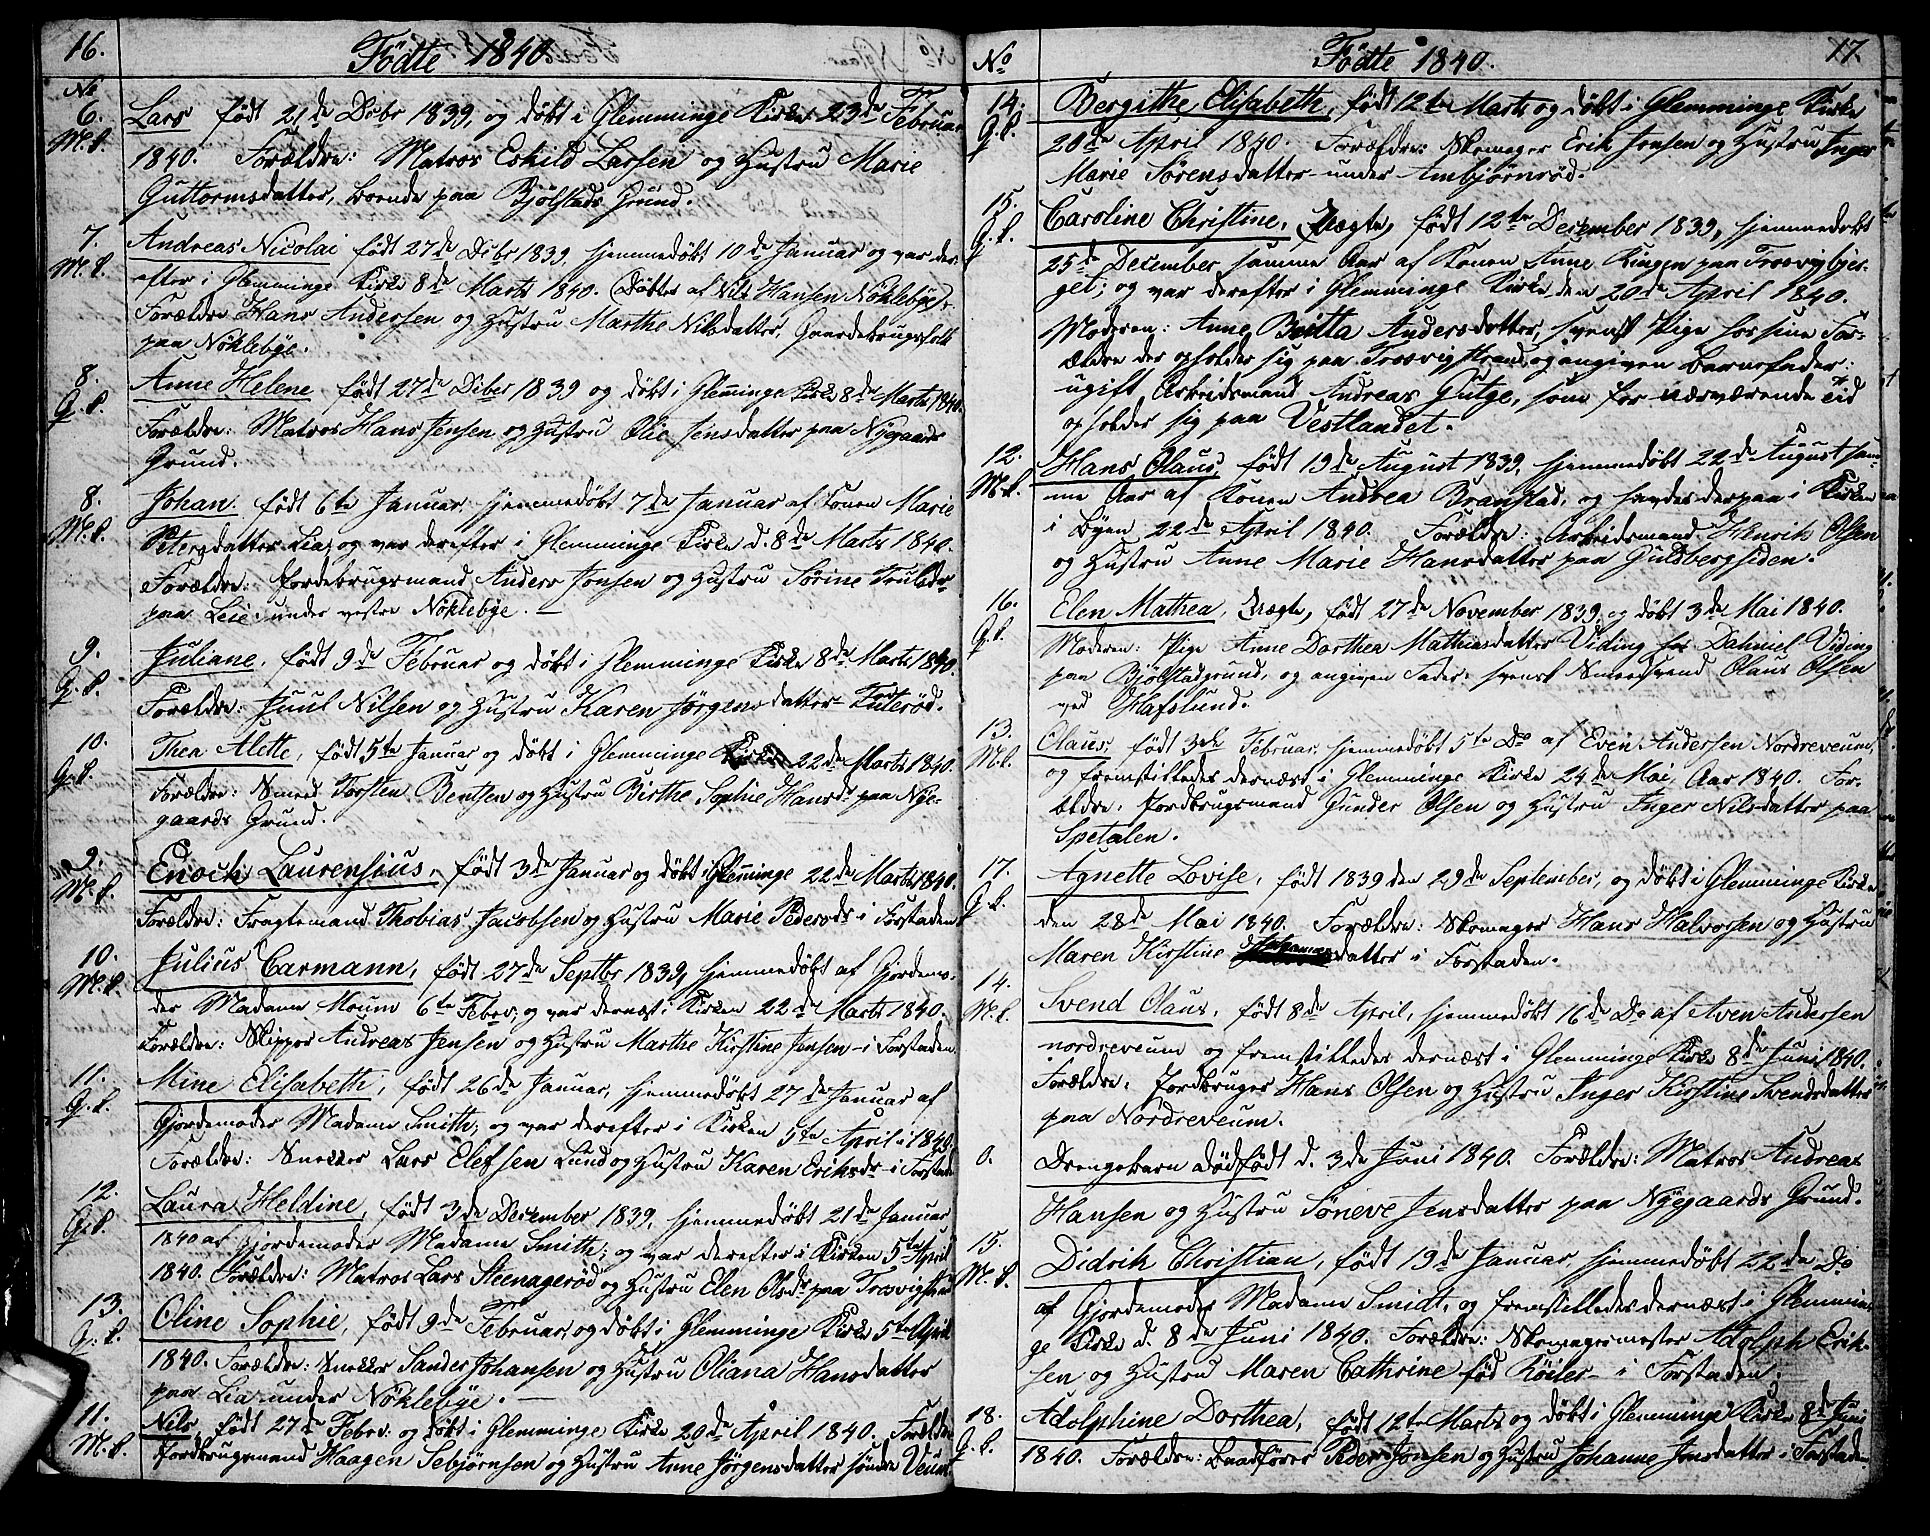 16.
Födte 1840.
No
6. Lars født 21de Decbr 1839, og døbt i Glemminge Kirke 23de Februar
M.k. 1840. Forældre: Matros Eskild Larsen og Hustru Marie
Guttormsdatter, boende paa Bjølstads Grund.
7. Andreas Nicolai født 27de Decbr 1839, hjemmedøbt 10de Januar og var der-
M.k. efter i Glemminge Kirke 8de Marts 1840. (Døbter af Nils Hansen Nöklebye).
Forældre Hans Andersen og Hustru Marthe Nilsdatter, Gaardebrugsfolk
paa Nöklebye.
8. Anne Helene født 27de Decber 1839 og døbt i Glemminge Kirke 8de Marts 1840.
Q.k. Forældre: Matros Hans Jensen og Hustru Olie Jensdatter paa Nyegaards
Grund.
8. Johan født 6te Januar, hjemmedøbt 7de Januar af Konen Marie
M.k. Petersdatter Lia, og var derefter i Glemminge Kirke d. 8de Marts 1840.
Forældre: Jordebrugsmand Anders Jonsen og Hustru Sörine Trulsdr
paa Leie under vestre Nöklebye.
9. Juliane, født 9de Februar og døbt i Glemminge Kirke 8de Marts 1840.
Q.k. Forældre: Juul Nilsen og Hustru Karen Jörgensdatter Tuterød.
10. Thea Alette, født 5te Januar og døbt i Glemminge Kirke 22de Marts 1840.
Q.k. Forældre: Smed Torsten Bentsen og Hustru Birthe Sophie Hansdr paa Nye-
gaards Grund.
9. Enoch Laurensius, født 3de Januar og døbt i Glemminge 22de Marts 1840.
M.k. Forældre: Fragtemand Thobias Jacobsen og Hustru Marie Pedersdr i Forstaden
10. Julius Carmann, født 27de Septbr 1839, hjemmedøbt af Gjordemo-
M.k. der Madame Moum 6te Febr, og var dernæst i Kirken 22de Marts 1840.
Forældre: Skipper Andreas Jensen og Hustru Marthe Kirstine Jensen i Forstaden
11. Mine Elisabeth, født 26de Januar, hjemmedøbt 27de Januar af
Q.k. Gjordemoder Madame Smith, og var derefter i Kirken 5te April 1840.
Forældre: Snekker Lars Elefsen Lund og Hustru Karen Eriksdr i Forstaden
12. Laura Heldine, født 3de December 1839, hjemmedøbt 21de Januar
Q.k. 1840 af Gjordemoder Madame Smith, og var derefter i Kirken 5te April
1840. Forældre: Matros Lars Steenagerød og Hustru Elen Olsdr paa Trosvigstrand
13. Oline Sophie, født 9de Februar, og døbt i Glemminge Kirke 5te April
Q.k. 1840. Forældre: Snekker Sander Johansen og Hustru Oliana Hansdatter
paa Lia under Nöklebye.
11. Nils, født 27de Febr: og døbt i Glemminge Kirke 20de April 1840. Forældre
M.k. Jordbrugsmand Haagen Sebjørnsen og Hustru Anne Jörgensdatter söndre Veum
No
Födte 1840.
17.
14. Bergithe Elisabeth, født 12te Marts og døbt i Glemminge Kirke
Q.k. 20de April 1840. Forældre: Skomager Erik Jensen og Hustru Inger
Marie Sörensdatter under Ambjørnrød.
15. Caroline Christine, Uægte, født 12te December 1839, hjemmedøbt
Q.k. 25de December samme Aar af Konen Anne Ringen paa Trosvigbjer-
get; og var derefter i Glemminge Kirke den 20de April 1840.
Moderen: Anne Britta Andersdatter, svensk Pige hos sine For-
ældre der opholder sig paa Trosvigstrand, og angiven Barnefader:
ugift Arbeidsmand Andreas Gutge, som for nærværende Tid
opholder sig paa Vestlandet.
12. Hans Olaus, født 19de August 1839, hjemmedøbt 22de August sam-
M.k. me Aar af Konen Andrea Branstad, og havdes derpaa i Kirken
i Byen 22de April 1840. Forældre: Arbeidsmand Henrik Olsen
og Hustru Anne Marie Hansdatter paa Guldbergsiden.
16. Elen Mathea, Uægte, født 27de November 1839, og døbt 3de Mai 1840.
Q.k. Moderen: Pige Anne Dorthea Mathiasdatter Viding hos Dahniel Viding
paa Bjølstadgrund, og angiven Fader: svensk Smedsvend Olaus Olsen
ved Hafslund.
13. Olaus, født 3de Februar, hjemmedøbt 5te Do af Even Andersen Nordreveum,
M.k. og fremstilledes dernæst i Glemminge Kirke 24de Mai, Aar 1840. For-
ældre: Jordbrugsmand Gunder Olsen og Hustru Inger Nilsdatter paa
Spetalen.
17. Agnette Lovise, født 1839 den 29de September, og døbt i Glemminge Kirke
Q.k. den 28de Mai 1840. Forældre: Skomager Hans Halvorsen og Hustru
Maren Kirstine Johannesdatter i Forstaden.
14. Svend Olaus, født 8de April, hjemmedøbt 16de Do af Aven Andersen
M.k. nordreveum og fremstilledes dernæst i Glemminge Kirke 8de Juni 1840.
Forældre: Jordbruger Hans Olsen og Hustru Inger Kirstine Svendsdatter
paa Nordreveum.
0. Drengebarn dödfødt d. 3de Juni 1840. Forældre: Matros Andreas
Hansen og Hustru Söneve Jensdatter paa Nyegaards Grund.
15. Didrik Christian, født 19de Januar, hjemmedøbt 22de Do
M.k. af Gjordemoder Madame Smidt, og fremstilledes dernæst i Glemmin-
ge Kirke d. 8de Juni 1840. Forældre: Skomagermester Adolph Erik-
sen og Hustru Maren Cathrine fød Röiler i Forstaden.
18. Adolphine Dorthea, født 12te Marts og døbt i Glemminge Kirke 8de Juni
Q.k. 1840. Forældre: Baadfører Peder Jonsen og Hustru Johanne Jensdatter i Forstaden.